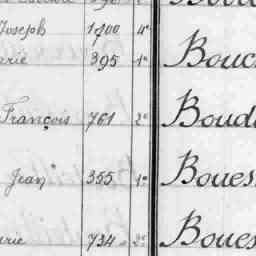 Joseph 1,700 4°
arie 395 1° Bouc
François 761 2° Boud
Jean 355 1° Boues
arie 734 2° Boues